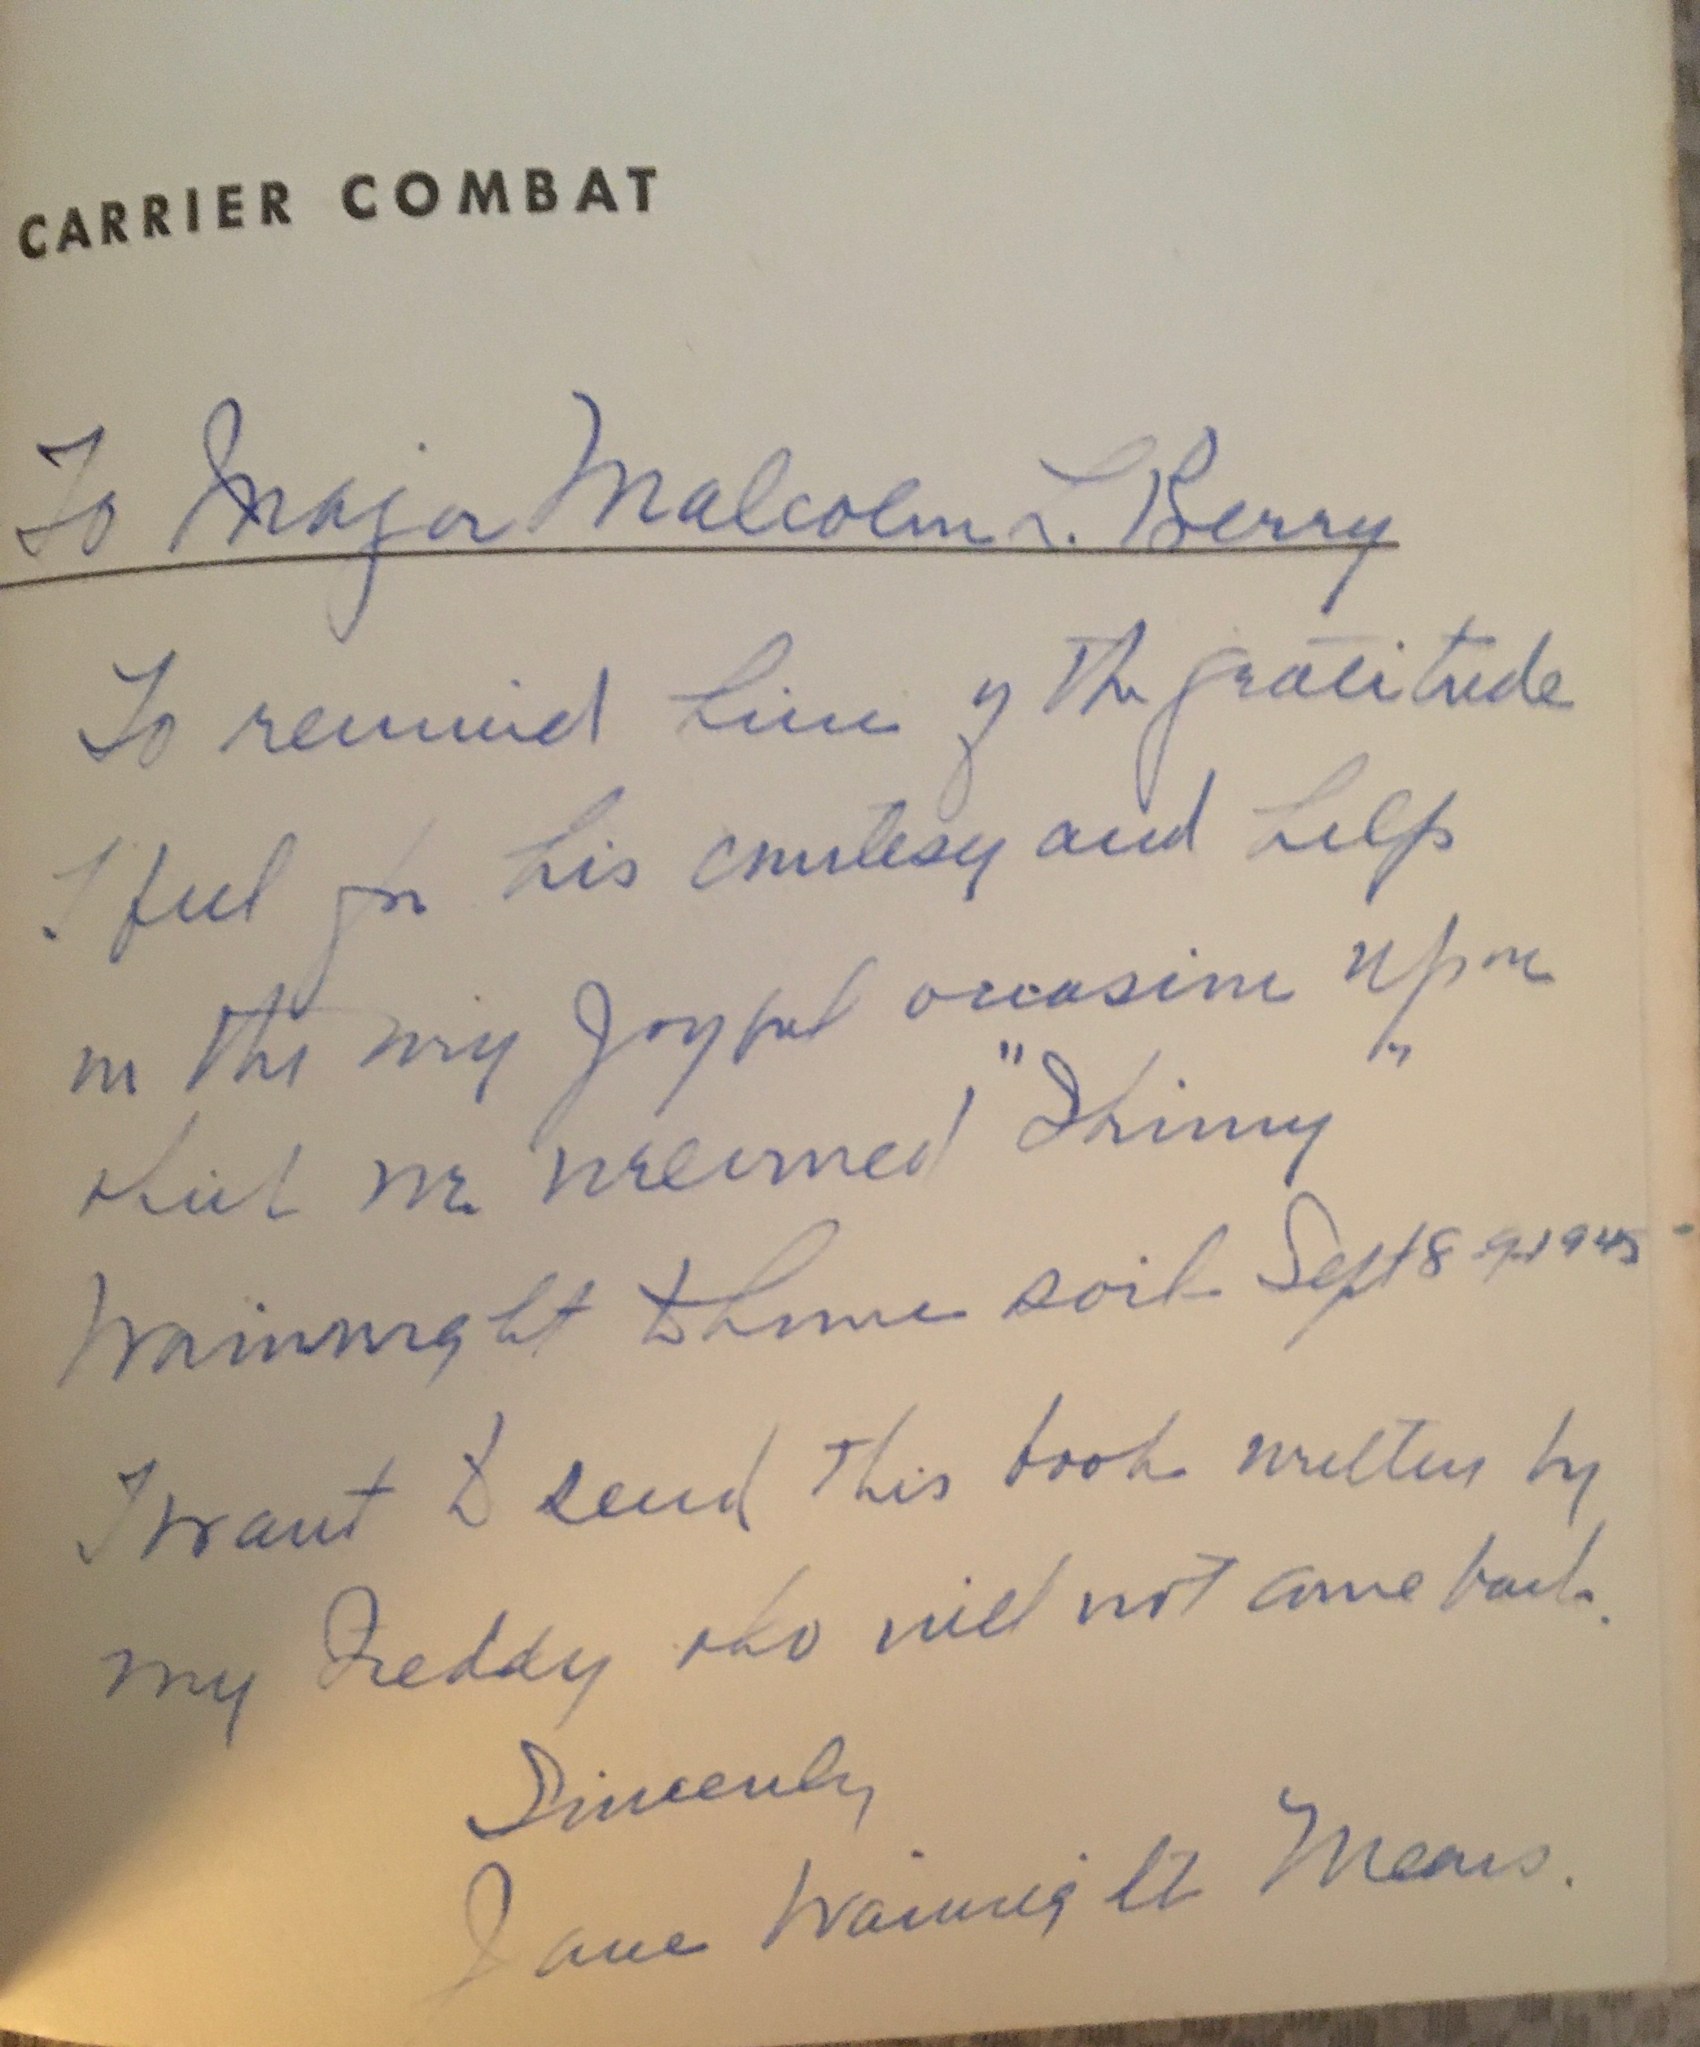 CARRIER COMBAT
To Major Malcolm L. Berry
To remind him of the gratitude
I feel for his courtesy and help
on the very joyful occasion upon
which we welcomed "Skinny"
Wainwright to home soil Sept 8-9-1945
I want to send this book written by
my Freddy who will not come back.
Sincerely,
Jane Wainwright Mears.